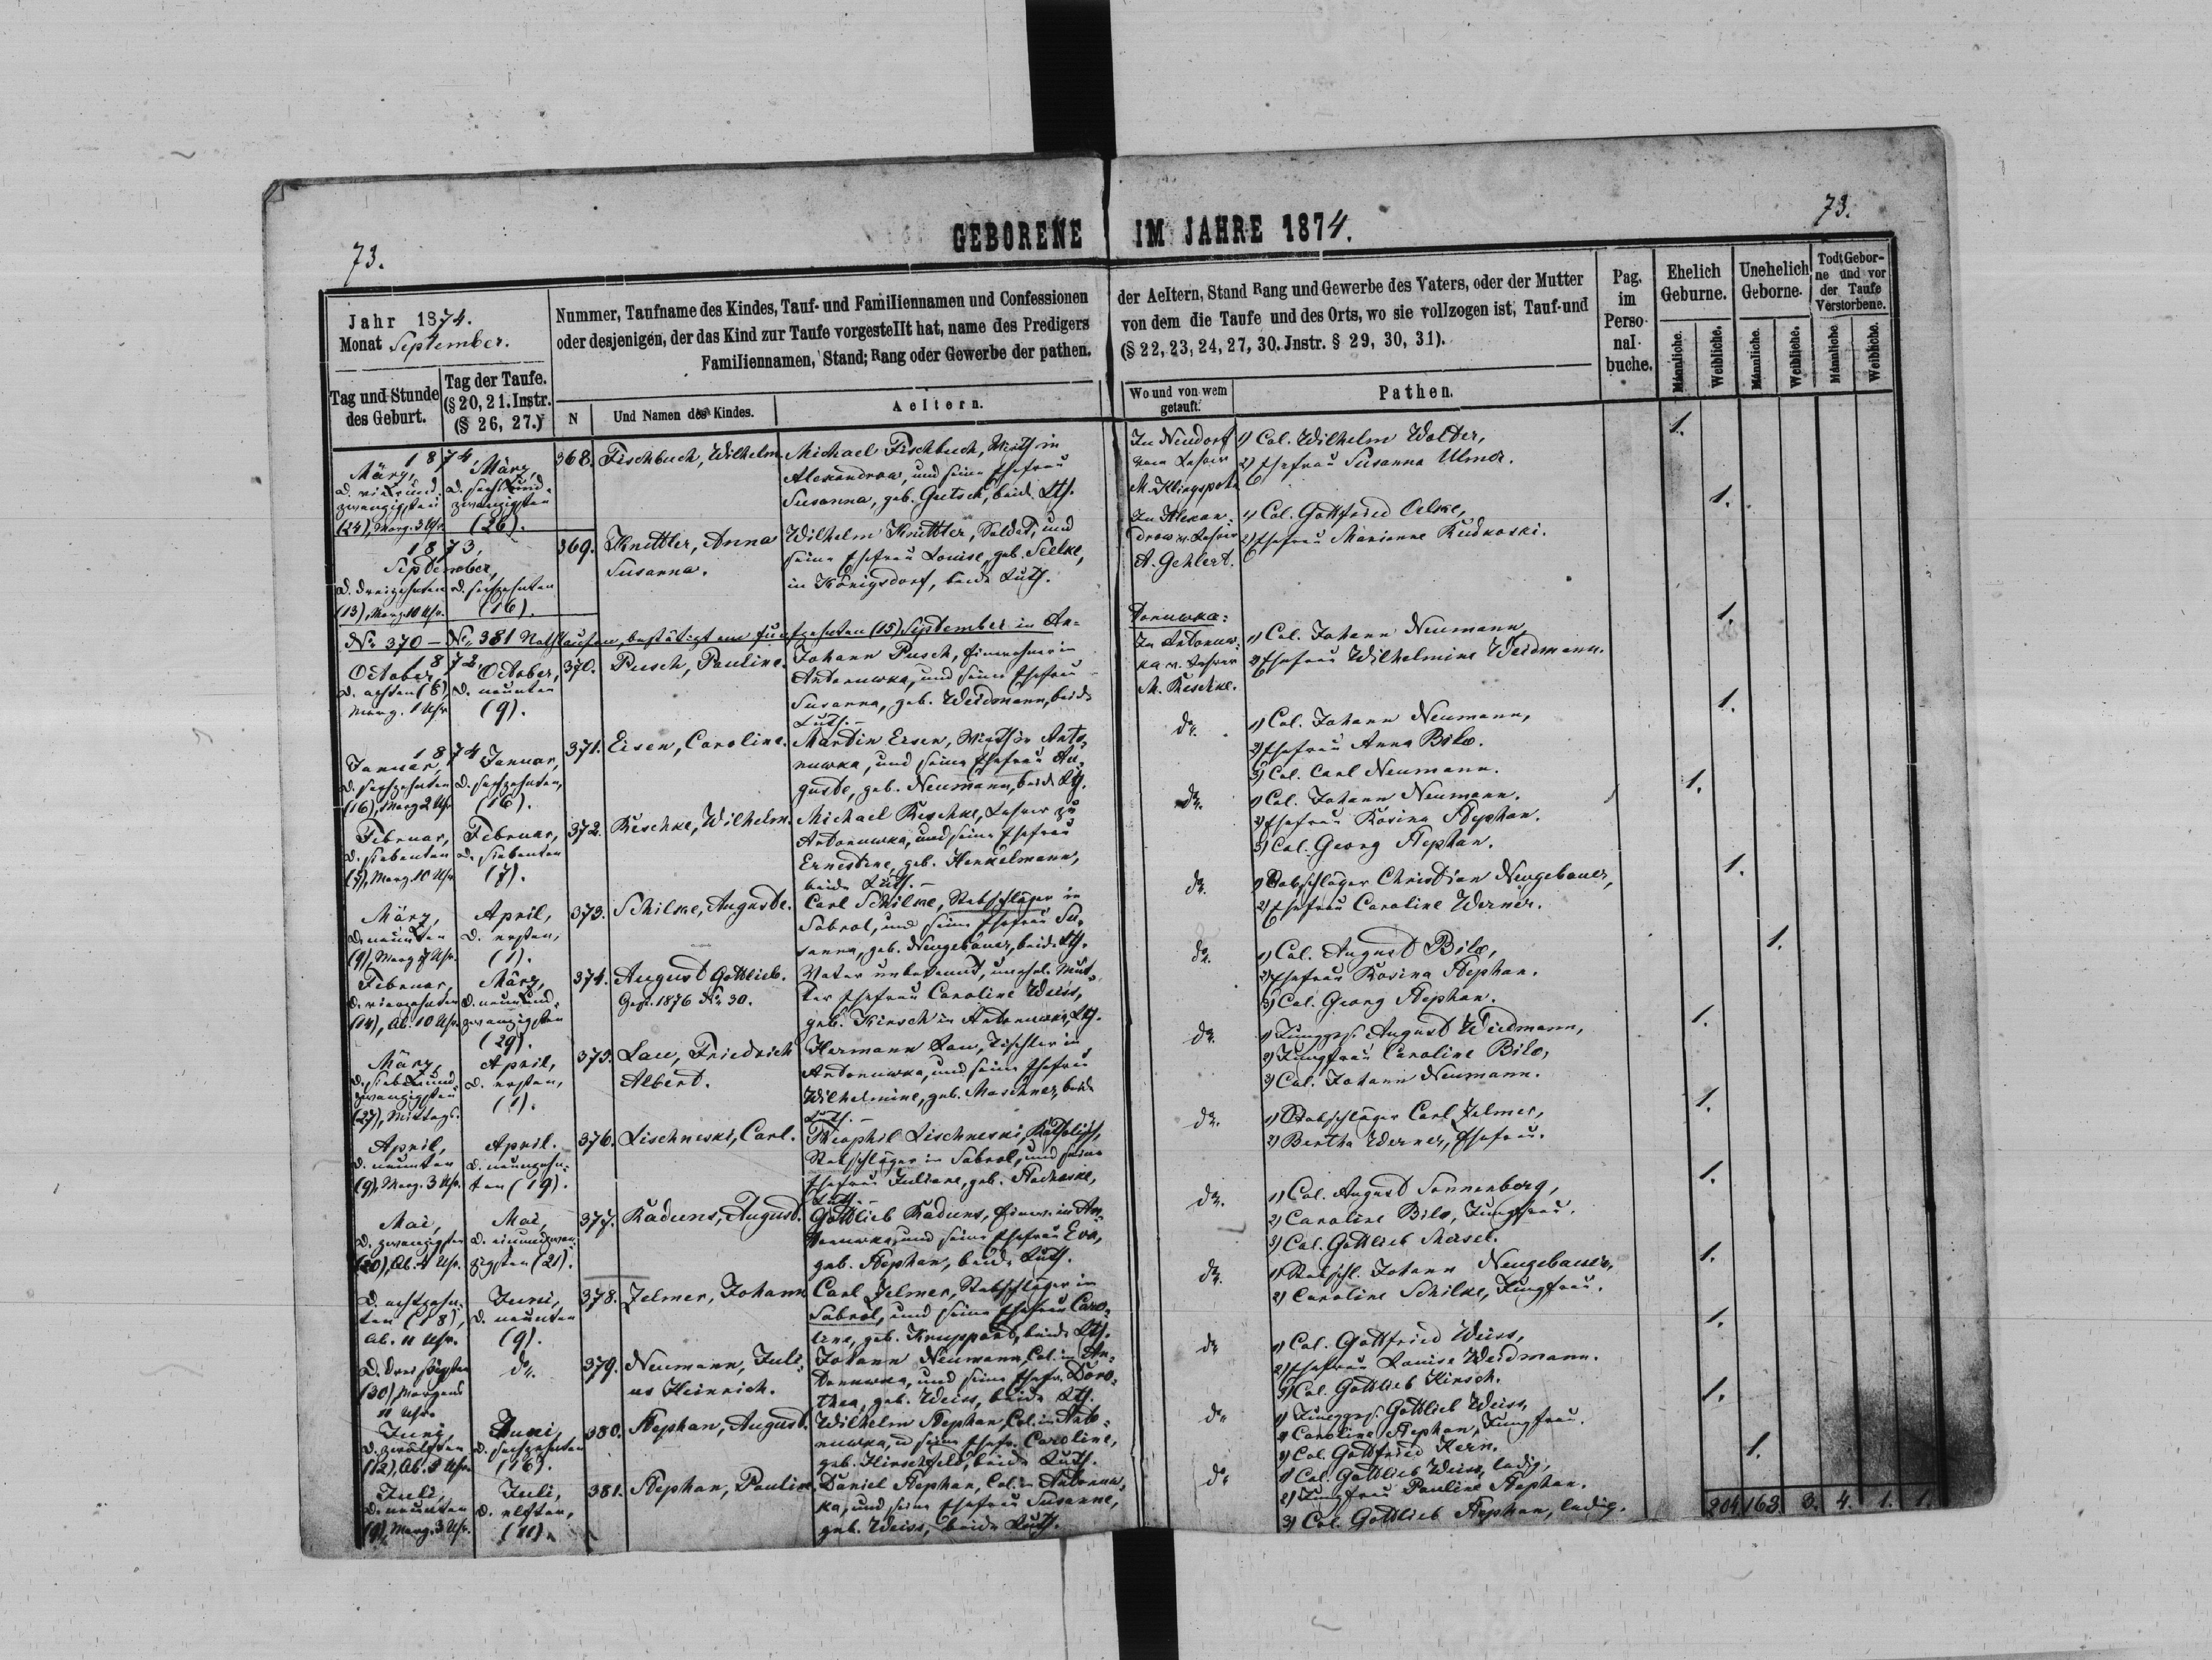 73.
GEBORENE IM JAHRE 1874.
73.
Jahr 1874.
Monat September.
Tag und Stunde
des Geburt.
Tag der Taufe.
(§ 20, 21. Instr.
(§ 26, 27.)
Nummer, Taufname des Kindes, Tauf- und Familiennamen und Confessionen
oder desjenigen, der das Kind zur Taufe vorgestellt hat, name des Predigers
Familiennamen, Stand; Rang oder Gewerbe der pathen.
N
Und Namen des Kindes.
Aeltern.
der Aeltern, Stand Rang und Gewerbe des Vaters, oder der Mutter
von dem die Taufe und des Orts, wo sie vollzogen ist, Tauf-und
(§ 22, 23, 24, 27, 30. Jnstr. § 29, 30, 31).
Wo und von wem
getauft.
Pathen.
Pag.
im
Perso-
nal-
buche.
Ehelich
Geburne.
Unehelich
Geborne.
Todt Gebor-
ne und vor
der Taufe
Verstorbene.
Männliche.
Weibliche.
Männliche.
Weibliche.
Männliche
Weibliche.
1874,
März,
d. vierund-
zwanzigsten
(24), Morg. 3 Uhr
März,
d. sechsund-
zwanzigsten
(26).
368.
Fischbuch, Wilhelm.
Michael Fischbuch, Wirth in
Alexandrow, und seine Ehefrau
Susanna, geb. Gutsch, beide Lth.
In Neudorf
vom Lehrer
M. Klingspohn
1) Col. Wilhelm Wolter,
2) Ehefrau Susanna Ulmer.
1.
1873,
September,
d. dreizehnten
(13), Morg. 10 Uhr.
d. sechzehnten
(16).
369.
Knittler, Anna
Susanna.
Wilhelm Knittler, Soldat, und
seine Ehefrau Louise, geb. Seelke,
in Königsdorf, beide Luth.
In Alexan-
drow v. Lehrer
A. Gehlert.
1) Col. Gottfried Oelke,
2) Ehefrau Marianne Rudkoski.
1.
No. 370 – No. 381 Nothtaufen, bestätigt am fünfzehnten (15) September in An-
tonuwka:
1872,
October,
d. achten (8)
Morg. 1 Uhr
October,
d. neunten
(9).
370.
Pusch, Pauline.
Johann Pusch, Einwohner in
Antonuwka, und seine Ehefrau
Susanna, geb. Weidmann, beide
Luth.–
In Antonuw-
ka v. Lehrer
M. Reschke.
1) Col. Johann Neumann,
2) Ehefrau Wilhelmine Weidmann.
1.
1874
Januar,
d. sechzehnten
(16), Morg. 2 Uhr
Januar,
d. sechzehnten,
(16).
371.
Eisen, Caroline.
Martin Eisen, Wirth in Anto-
nuwka, und seine Ehefrau Au-
guste, geb. Neumann, beide Lth.
do.
1) Col. Johann Neumann,
2) Ehefrau Anna Bilo.
3) Col. Carl Neumann.
1.
Februar,
d. siebenten
(7), Morg. 10 Uhr
Februar,
d. siebenten
(7).
372.
Reschke, Wilhelm.
Michael Reschke, Lehrer zu
Antonuwka, und seine Ehefrau
Ernestine, geb. Henkelmann,
beide Luth.–
do.
1) Col. Johann Neumann.
2) Ehefrau Rosina Stephan.
3) Col. Georg Stephan.
1.
März,
d. neunten
(9), Morg. Uhr.
April,
d. ersten,
(1).
373.
Schilke, Auguste.
Carl Schilke, Stabschläger in
Sabrol, und seine Ehefrau Su-
sanna, geb. Neugebauer, beide Lth.
do.
1) Stabschläger Christian Neugebauer,
2) Ehefrau Caroline Werner.
1.
Februar,
d. vierzehnten
(14), Ab. 10 Uhr.
März,
d. neunund-
zwanzigsten
(29).
374.
August Gottlieb.
Gest. 1876 No. 30.
Vater unbekannt, unehel. Mut-
ter Ehefrau Caroline Weiss,
geb. Kirsch in Antonuwka, Lth.
do.
1) Col. August Bilo,
2) Ehefrau Rosina Stephan.
3) Col. Georg Stephan.
1.
März,
d. siebenund-
zwanzigsten
(27), Mittags.
April,
d. ersten,
(1).
375.
Lau, Friedrich
Albert.
Hermann Lau, Tischler in
Antonuwka, und seine Ehefrau
Wilhelmine, geb. Maschner, beide
Luth.–
do.
1) Junggs. August Weidmann,
2) Jungfrau Caroline Bilo,
3) Col. Johann Neumann.
1.
April,
d. neunten
(9), Morg. 3 Uhr.
April.
d. neunzehn-
ten (19).
376.
Lischneski, Carl.
Theophil Lischneski, Katholisch,
Stabschläger in Sabrol, und seine
Ehefrau Juliane, geb.
Luth.–
do.
1) Stabschläger Carl Jelmer,
2) Bertha Werner, Ehefrau.
1.
Mai,
d. zwanzigsten
(20), Ab. 4 Uhr.
Mai,
d. einundzwan-
zigsten (21).
377.
Raduns, August.
Gottlieb Raduns, Einw. in An-
tonuwka, und seine Ehefrau Eva,
geb. Stephan, beide Luth.
do.
1) Col. August Sonnenberg,
2) Caroline Bilo, Jungfrau.
3) Col. Gottlieb
1.
d. achtzehn-
ten (18),
Ab. 11 Uhr.
Juni,
d. neunten
(9).
378.
Jelmer, Johann
Carl Jelmer, Stabschläger in
Sabrol, und seine Ehefrau Caro-
line, geb. Kruppart, beide Lth.
do.
1) Stabschl. Johann Neugebauer,
2) Caroline Schilke, Jungfrau.
1.
d. dreissigsten
(30) Morgens
11 Uhr.
do.
379.
Neumann, Juli-
us Heinrich.
Johann Neumann, Col. in An-
tonuwka, und seine Ehefr. Doro-
thea, geb. Weiss, beide Lth.
do
1) Col. Gottfried Weiss,
2) Ehefrau Louise Weidmann.
3) Col. Gottlieb Kirsch.
1.
Juni,
d. zwölften
(12), Ab. Uhr.
Juni,
d. sechzehnten
(16).
380.
Stephan, August.
Wilhelm Stephan, Col. in Anto-
nuwka, u seine Ehefr. Caroline,
geb. Hirschfeld, beide Luth.
do
1) Junggs. Gottlieb Weiss,
2) Caroline Stephan, Jungfrau.
3) Col. Gottfried Kern.
1.
Juli,
d. neunten
(9), Morg. 3 Uhr.
Juli,
d. elften,
(11).
381.
Stephan, Pauline
Daniel Stephan, Col. in Antonuw-
ka, und seine Ehefrau Susanne,
geb. Weiss, beide Luth.
do
1) Col. Gottlieb Weiss, ledig,
2) Jungfrau Pauline Stephan.
3) Col. Gottlieb Stephan, ledig.
1.
204. 163. 3. 4. 1. 1.